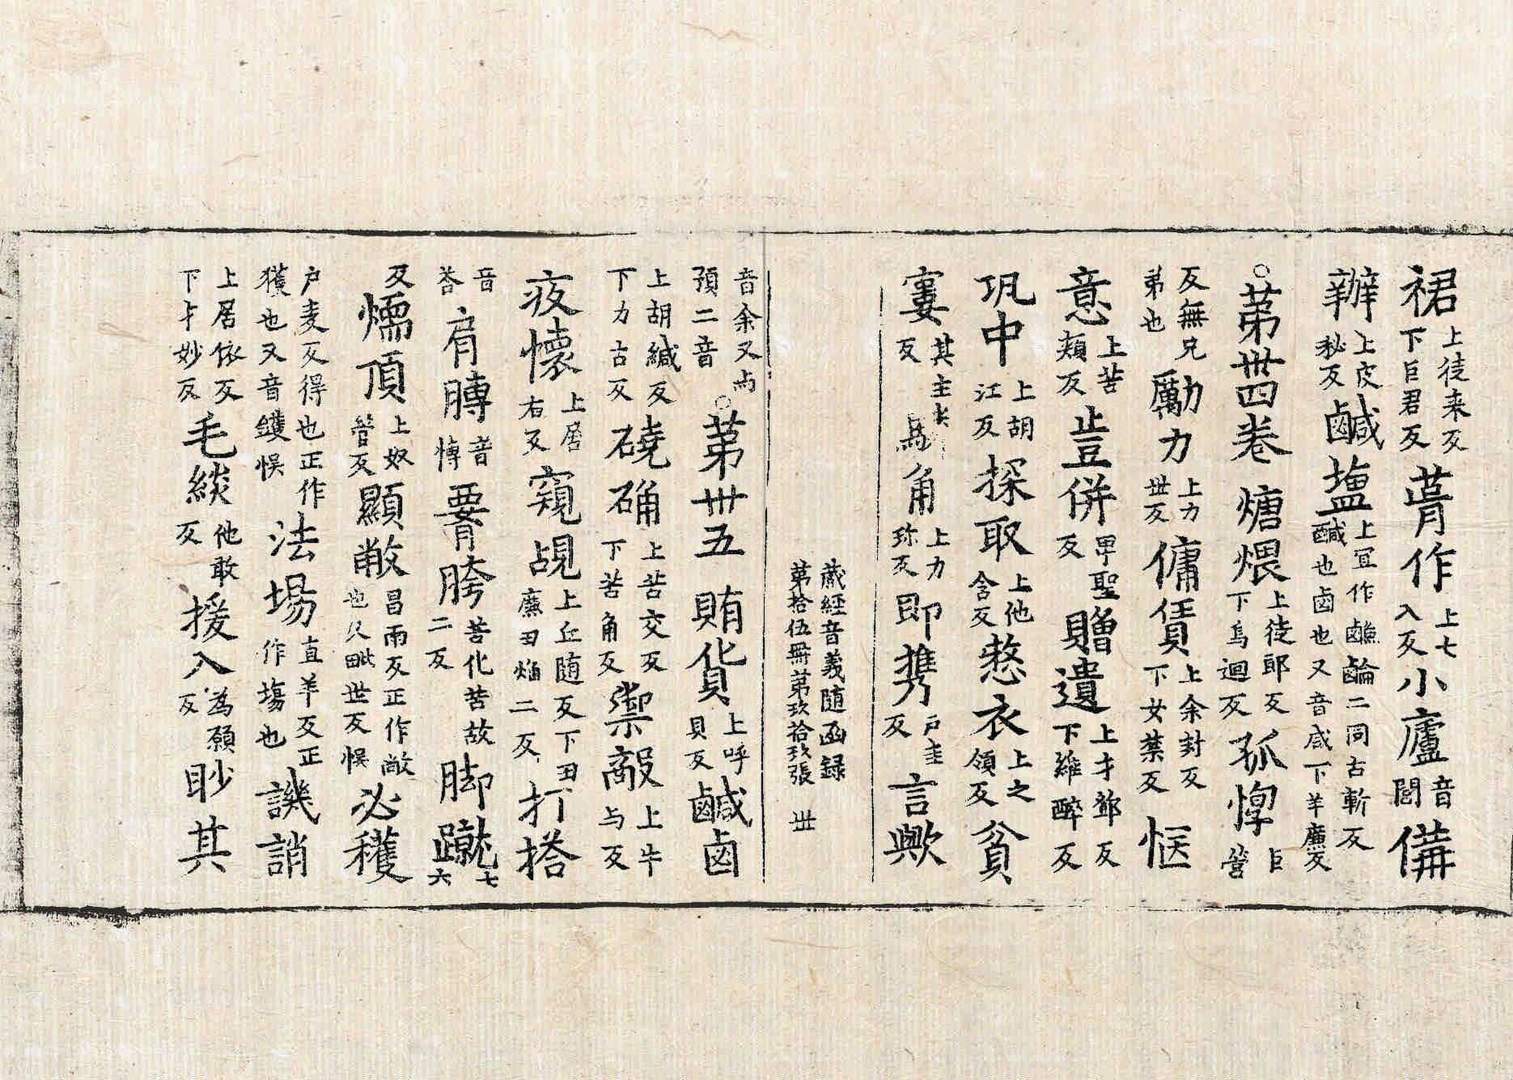 裙上徒来反下巨君反葺作上七入反小廬音閭備
辦上皮秘反鹹塩上冝作鹹鹼二同古斬反鹹也鹵也又音咸下羊廉反
○苐丗四卷煻煨上徒郎反下烏迴反孤惸巨營
反無兄弟也勵力上力丗反傭賃上余封反下女禁反恇
意上苦頬反豈併卑聖反贈遺上才鄧反下維醉反
巩中上胡江反探取上他含反慗衣上之領反貧
寠其主反 角上力珎反即携戸圭反言歟
蔵經音義随函録
第拾伍冊第玖拾玖張 丗
音余又与預二音○苐丗五賄貨上呼貝反鹹鹵
上胡緘反下力古反磽确上苦交反下苦角反禦敵上牛与反
疚懷上居右反窺覘上丘随反下丑廉丑焰二反打搭
音荅肩膊音博䯒胯苦化苦故二反脚蹴七六
反㬉頂上奴管反顯敞昌兩反正作敞也又毗世反悮必穫
户麦反得也正作獲也又音鑊悮法場直羊反正作塲也譏誚
上居依反下才妙反毛緂他敢反援入為願反眇其